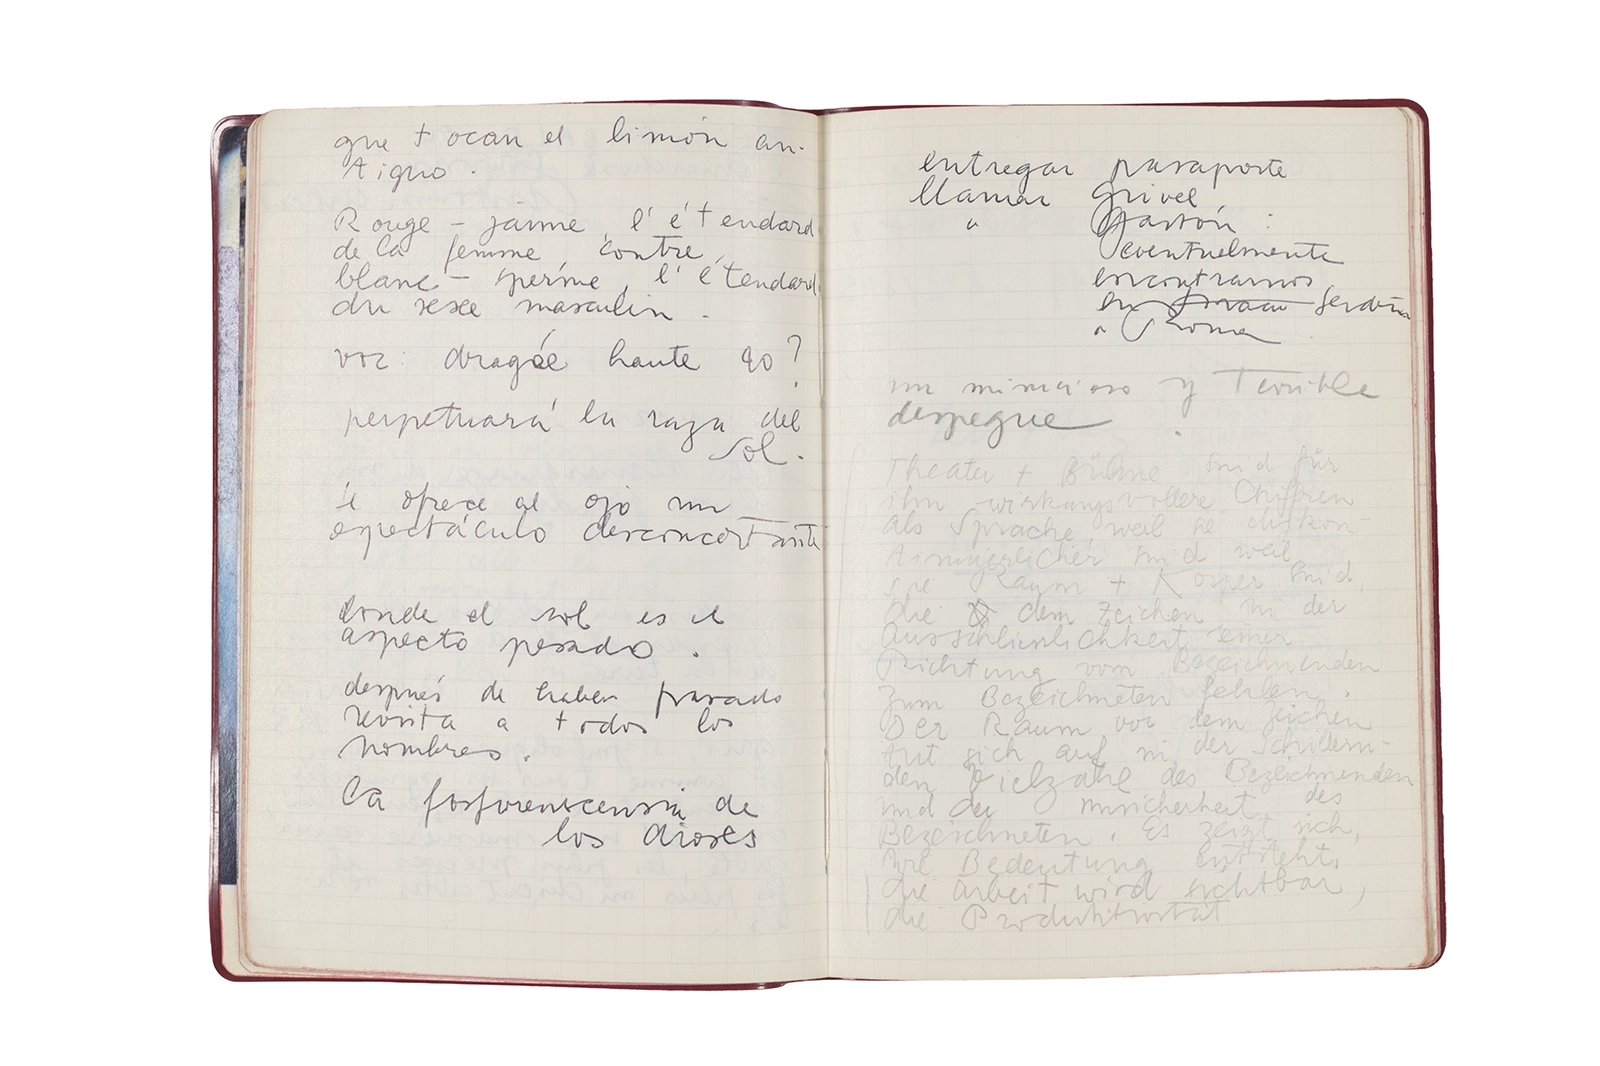 que tocan el limón an-
tiguo.
Rouge – jaune, l'étendard
de la femme contre,
blanc – sperme, l'étendard
du sexe masculin.
voc: dragée haute qo?
perpetuará la raza del
Sol.
se ofrece al ojo un
espectáculo desconcertante
donde el sol es el
aspecto pesado.
después de haber pasado
revista a todos los
nombres.
la fosforescensia de
los dioses
entregar pasaporte
llamar Grivel
" Gastón:
eventuelmente
encontrarnos
en
o Roma
un minucioso y terrible
despegue.
Theater + Bühne sind für
ihn wirkungsvollere Chiffren
als Sprache, weil sie diskon-
tinuierlicher sind weil
sie Raum + Körper sind,
die dem Zeichen in der
Ausschließlichkeit seiner
Richtung vom Bezeichnenden
zum Bezeichneten fehlen.
Der Raum vor dem Zeichen
tut sich auf in der schillern-
den Vielzahl des Bezeichnenden
und der Unsicherheit des
Bezeichneten. Es zeigt sich,
wie Bedeutung entsteht,
die Arbeit wird sichtbar,
die Produktivität